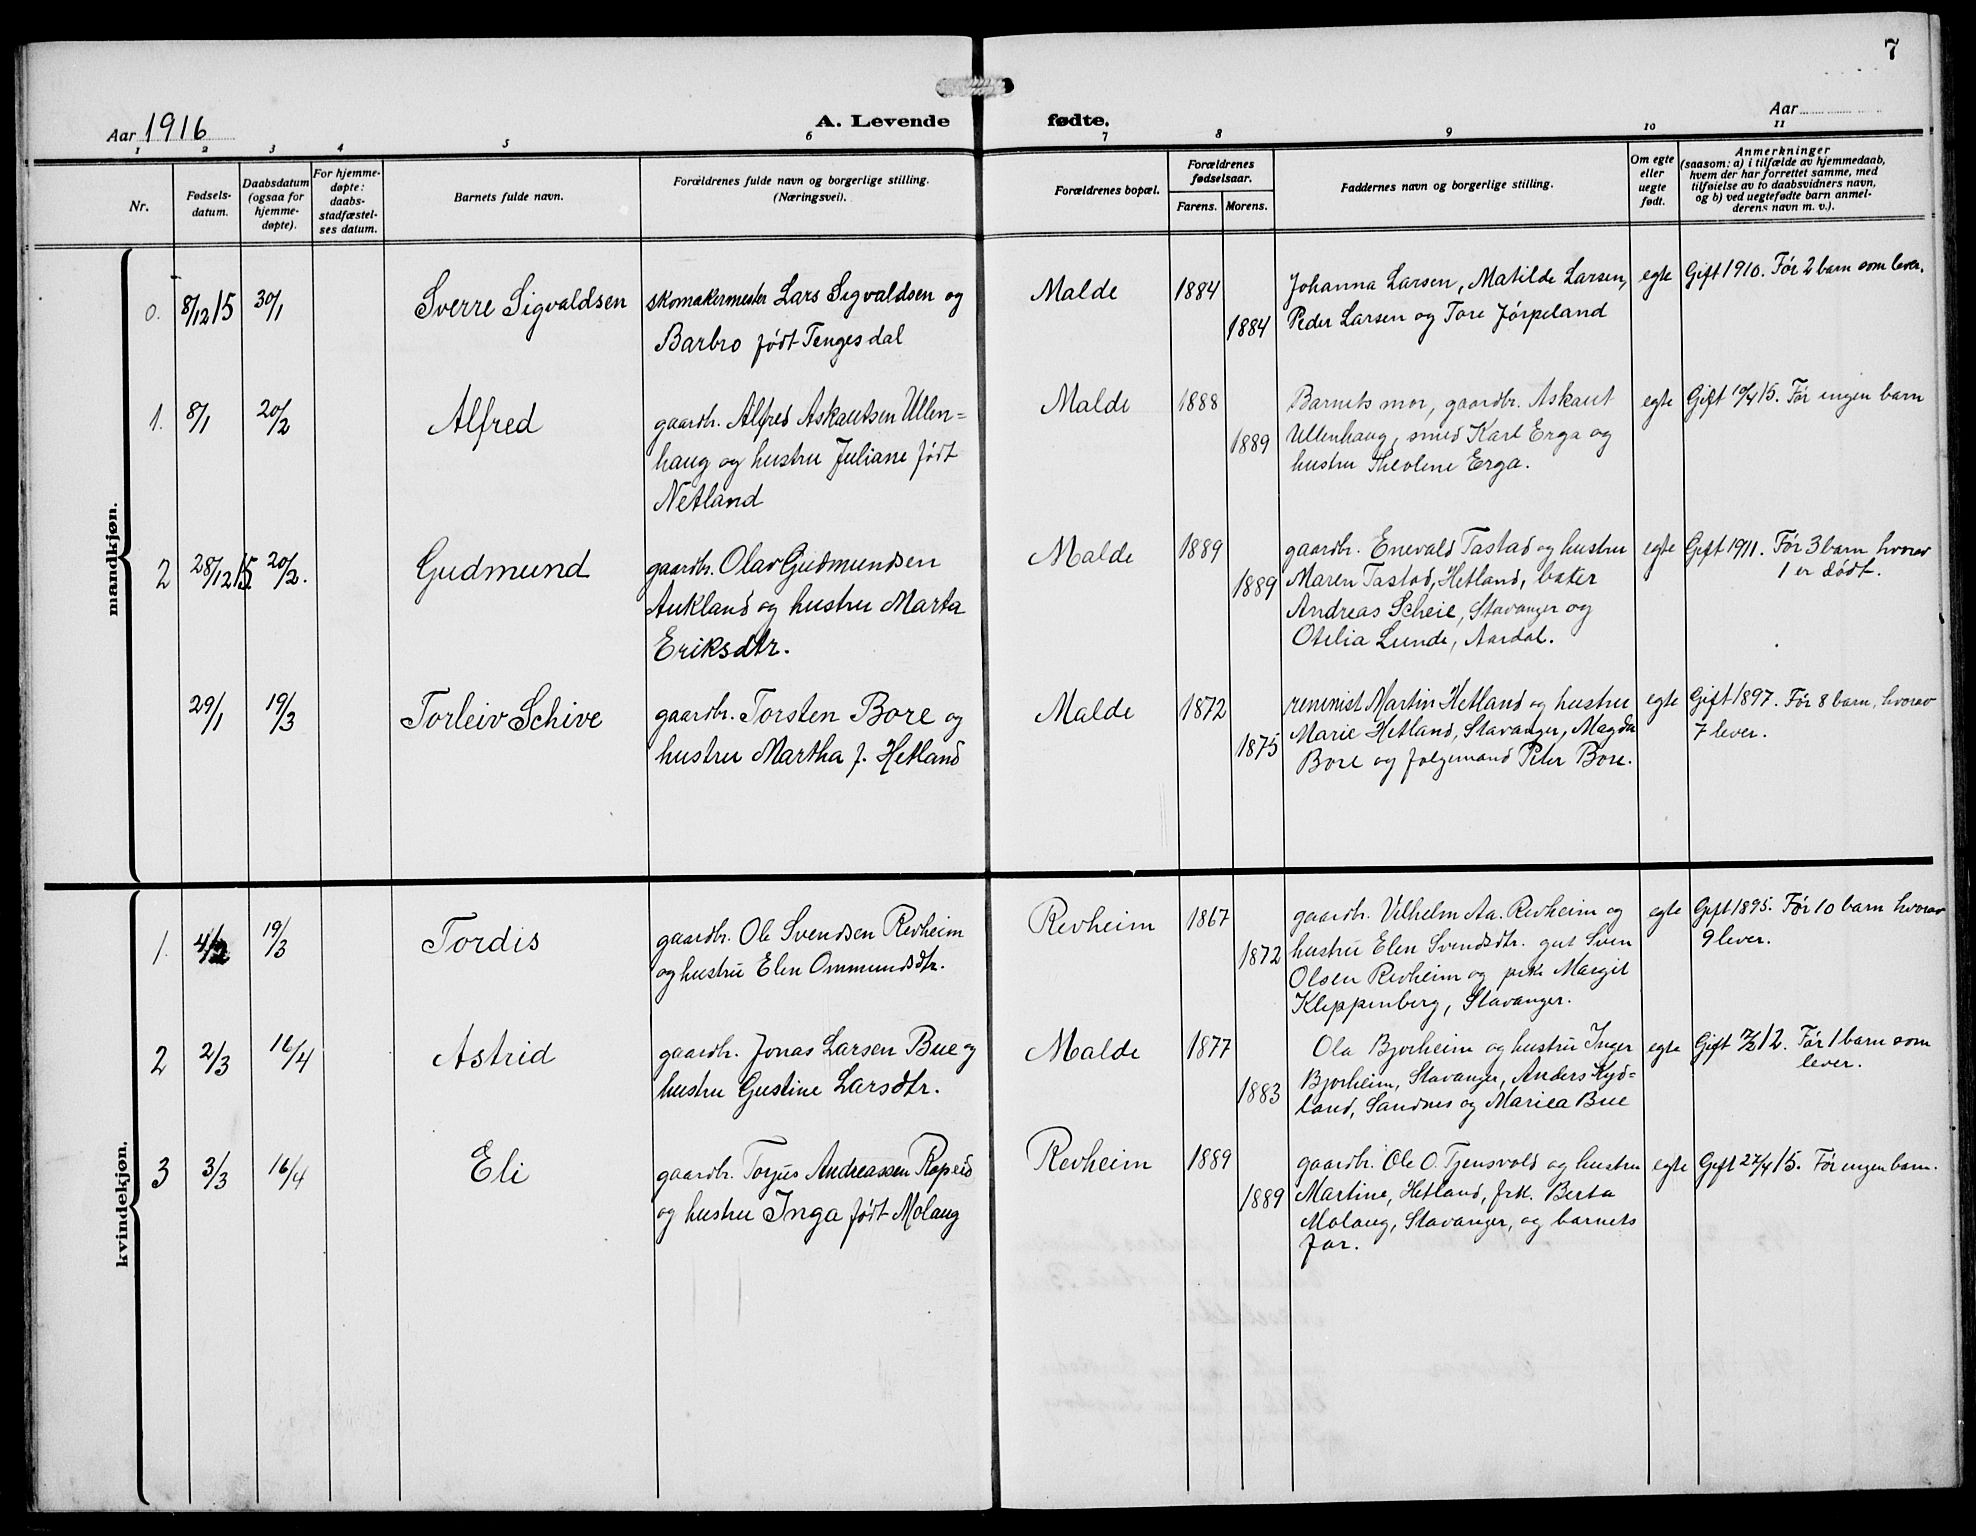 7
Aar 1916
A. Levende fødte.
Aar
1 2 3 4 5 6 7 8 9 10 11
Nr.
Fødsels-
datum.
Daabsdatum
(ogsaa for
hjemme-
døpte).
For hjemme-
døpte:
daabs-
stadfæstel-
ses datum.
Barnets fulde navn.
Forældrenes fulde navn og borgerlige stilling.
(Næringsvei).
Forældrenes bopæl.
Forældrenes
fødselsaar.
Farens. Morens.
Faddernes navn og borgerlige stilling.
Om egte
eller
uegte
født.
Anmerkninger
(saasom: a) i tilfælde av hjemmedaab,
hvem der har forrettet samme, med
tilføielse av to daabsvidners navn,
og b) ved uegtefødte barn anmel-
derens navn m. v.).
mandkjøn.
0. 8/12 15 30/1 Sverre Sigvaldsen
skomakermester Lars Sigvaldsen og
Barbro født Tengesdal
Malde 1884 1884
Johanna Larsen, Matilde Larsen,
Peder Larsen og Tore Jørpeland
egte
Gift 1910. Før 2 barn som lever.
1. 8/1 20/2 Alfred
gaardbr. Alfred Askautsen Ullen-
haug og hustru Juliane født
Netland
Malde 1888 1889
Barnets mor, gaardbr. Askaut
Ullenhaug, smed Karl Erga og
hustru Theoline Erga.
egte
Gift 10/4 15. Før ingen barn
2 28/12 15. 20/2. Gudmund
gaardbr. Olav Gudmundsen
Aukland og hustru Marta
Eriksdtr.
Malde 1889 1889
gaardbr. Enevald Tastad og hustru
Maren Tastad, Hetland, bater
Andreas Scheie, Stavanger og
Otilia Lunde, Aardal.
egte
Gift 1911. Før 3 barn hvorav
1 er dødt.
29/1 19/3 Torleiv Schive
gaardbr. Torsten Bore og
hustru Martha f. Hetland
Malde 1872 1875
renimist Martin Hetland og hustru
Marie Hetland, Stavanger, Magda
Bore og følgemand Peter Bore.
egte
Gift 1897. Før 8 barn, hvorav
7 lever.
kvindekjøn.
1. 4/2 19/3 Tordis
gaardbr. Ole Svendsen Revheim
og hustru Elen Ommundsdtr.
Revheim 1867 1872
gaardbr. Vilhelm Aa. Revheim og
hustru Elen Svendsdtr. gut Sven
Olsen Revheim og frk. Margit
Kleppenberg, Stavanger.
egte
Gift 1895. Før 10 barn hvorav
9 lever.
2 2/3 16/4 Astrid
gaardbr. Jonas Larsen Bue og
hustru Gustine Larsdtr.
Malde 1877 1883
Ola Bjorheim og hustru Inger
Bjorheim, Stavanger, Anders Kyd-
land, Sandnes og Mariea Bue
egte
Gift 12. Før 1 barn som
lever.
3 3/3 16/4 Eli
gaardbr. Torjus Andreassen Ropeid
og hustru Inga født Molaug
Revheim 1889 1889
gaardbr. Ole O. Tjensvold og hustru
Martine, Hetland, frk. Berta
Molaug, Stavanger, og barnets
far.
egte
Gift 27/4 15. Før ingen barn.